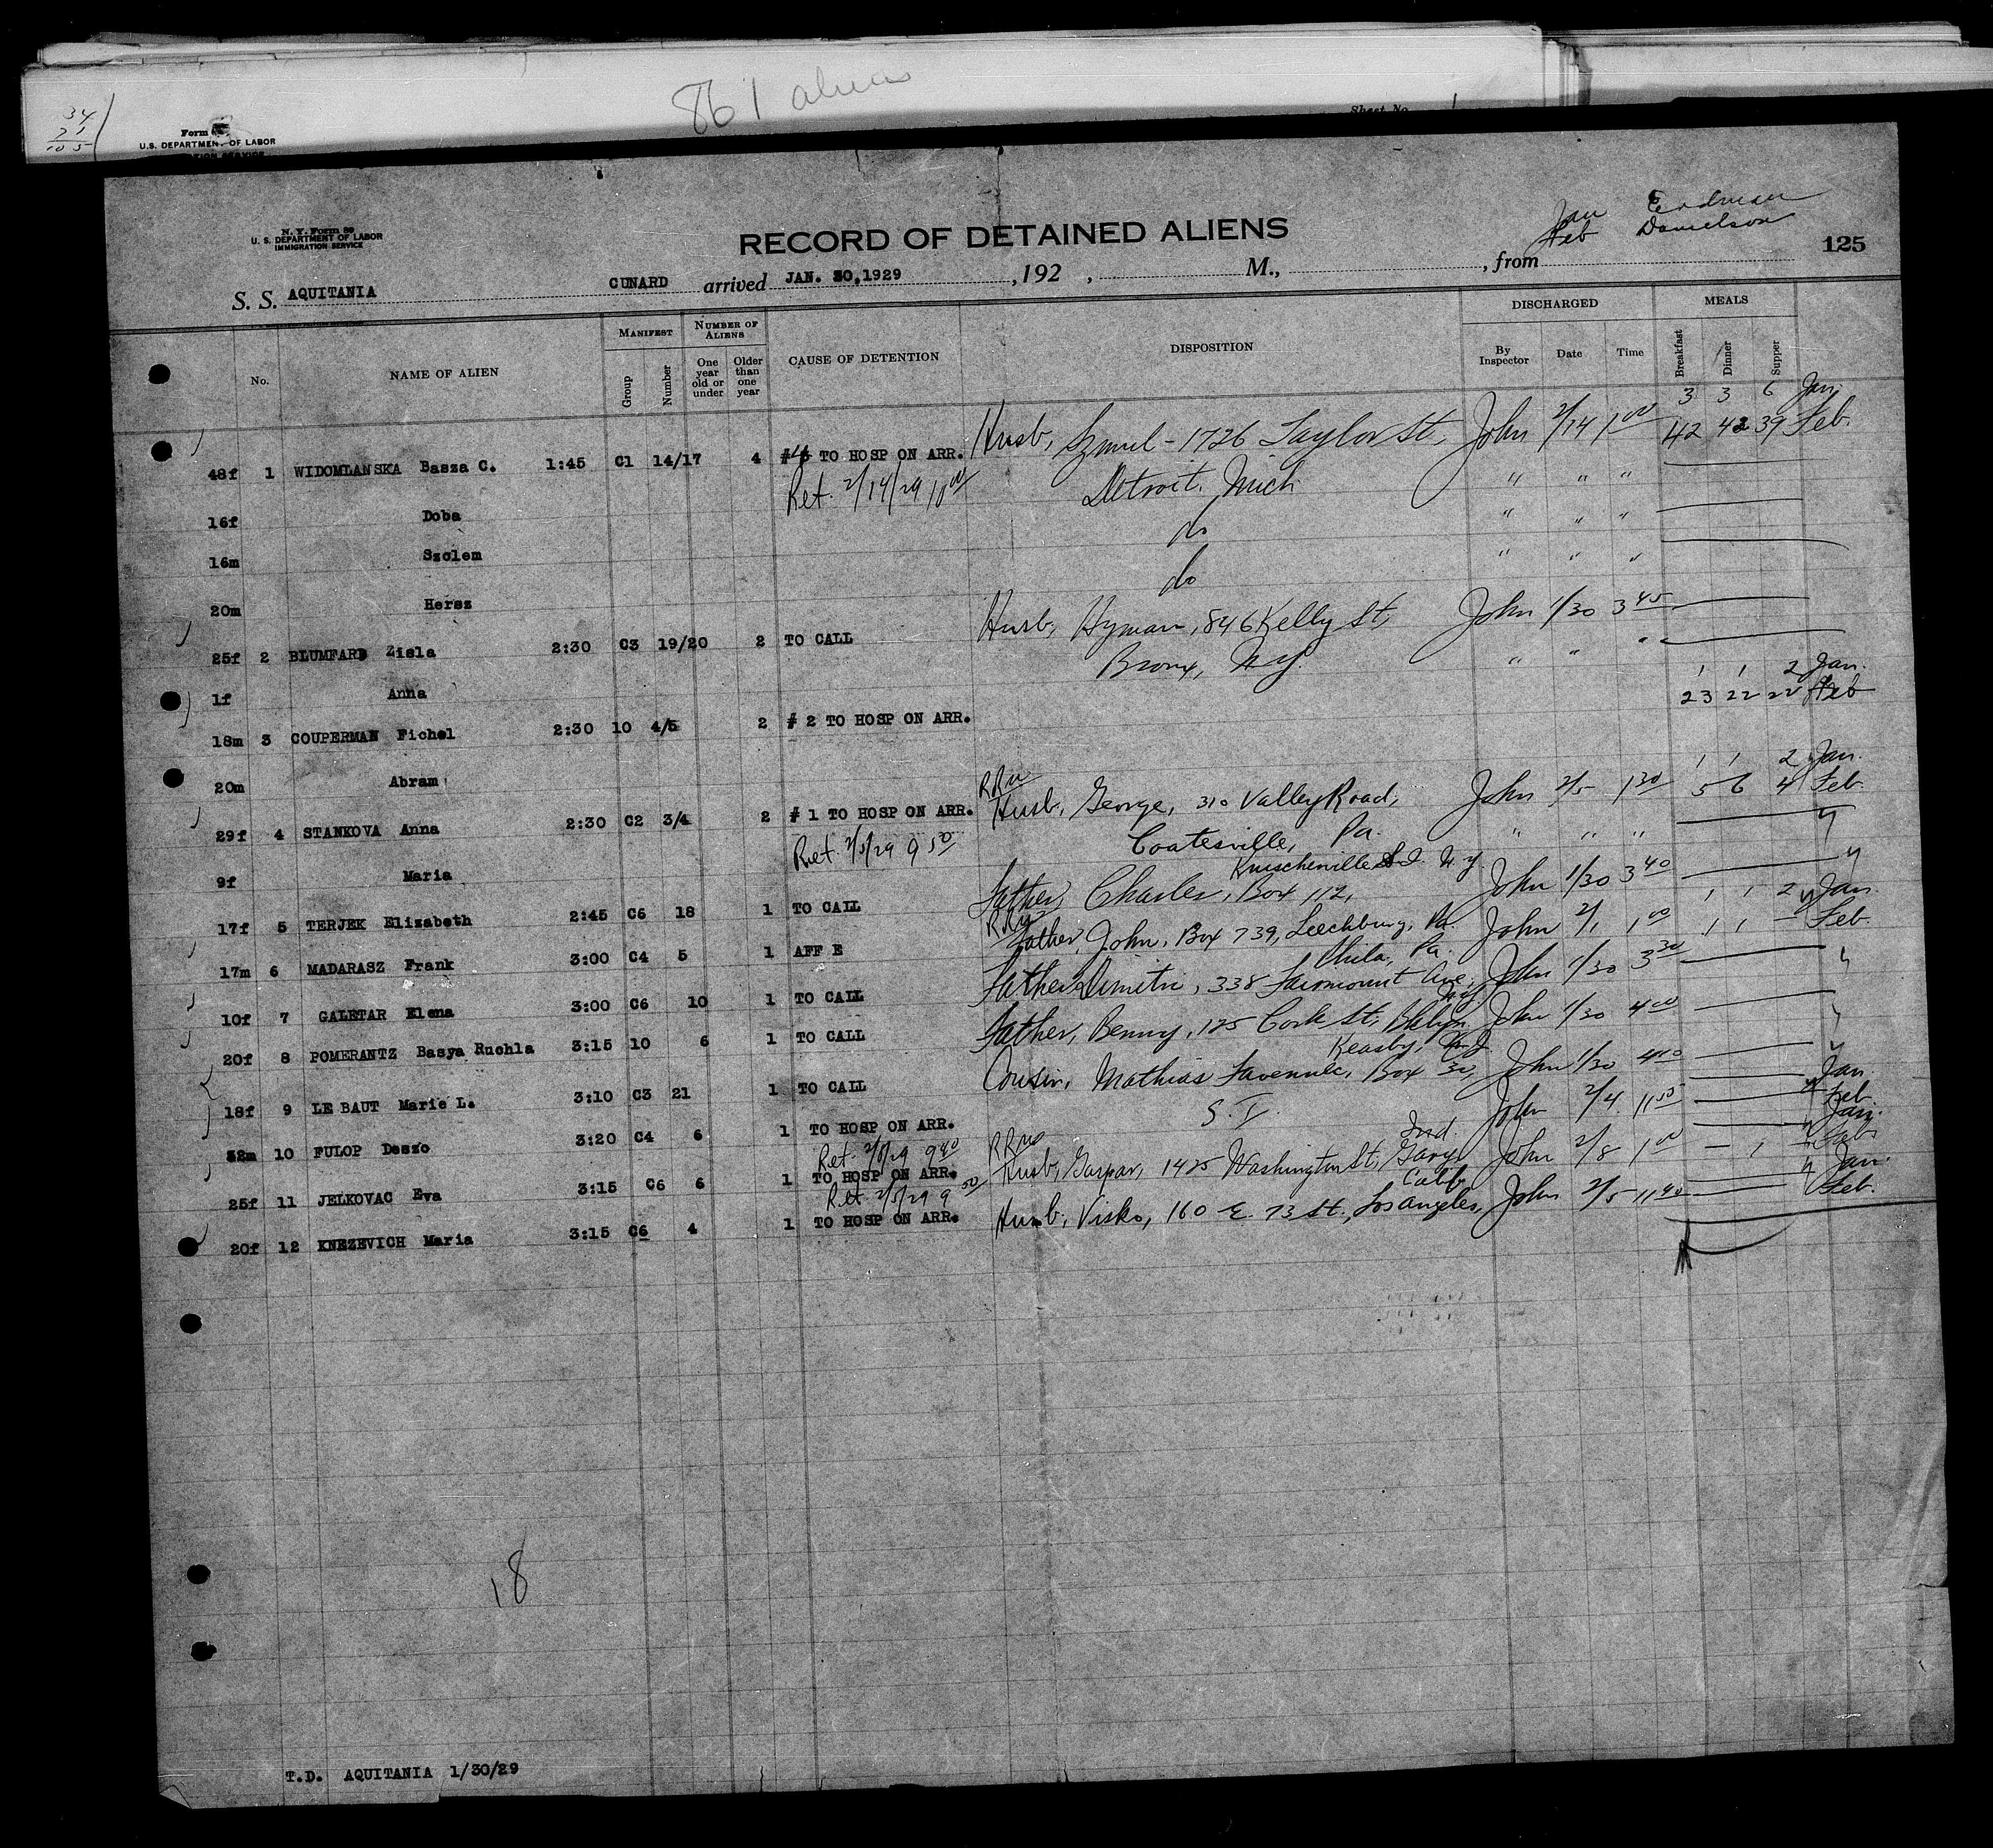 861 aliens
34
71
105
Form
U.S. DEPARTMENT OF LABOR
Sheet No. 1
N. Y. Form 39
U. S. DEPARTMENT OF LABOR
IMMIGRATION SERVICE
RECORD OF DETAINED ALIENS
Jan Erdman
Feb Danielson
125
S. S. AQUITANIA CUNARD arrived JAN. 30,1929 , 192 , M., , from
No. NAME OF ALIEN MANIFEST Group Number NUMBER OF ALIENS One year old or under Older than one year CAUSE OF DETENTION DISPOSITION DISCHARGED By Inspector Date Time MEALS Breakfast Dinner Supper
3 3 6 Jan.
48f 1 WIDOMLANSKA Basza C. 1:45 C1 14/17 4 #4 TO HOSP ON ARR. Husb, Szmul - 1726 Taylor St, John 2/14 1 00 42 42 39 Feb.
Ret. 2/14/29 Detroit, Mich. " " "
16f Doba do " " "
16m Szolem do " " "
20m Hersz
25f 2 BLUMFARD Zisla 2:30 C3 19/20 2 TO CALL Husb, Hyman, 846 Kelly St, John 1/30 3 45
Bronx, N.Y. " " "
1f Anna 1 1 2 Jan.
23 22 22 Feb
18m 3 COUPERMAN Fichel 2:30 10 4/5 2 # 2 TO HOSP ON ARR.
20m Abram 1 1 2 Jan.
29f 4 STANKOVA Anna 2:30 C2 3/4 2 # 1 TO HOSP ON ARR. Husb, George, 310 Valley Road, John 2/5 1 30 5 6 4 Feb.
Ret 2/5/29 9 50 Coatesville, Pa. " " "
9f Maria
Kreischerville S.I. N.Y.
17f 5 TERJEK Elizabeth 2:45 C6 18 1 TO CALL Father, Charles, Box 112, John 1/30 3 40
1 1 2 Jan.
17m 6 MADARASZ Frank 3:00 C4 5 1 AFF E Father, John, Box 739, Leechburg, Pa. John 2/1 1 00 1 1 — Feb.
Phila, Pa.
10f 7 GALETAR Elena 3:00 C6 10 1 TO CALL Father Dimitri, 338 Fairmount Ave, John 1/30 3 30
N.Y.
20f 8 POMERANTZ Basya Ruchla 3:15 10 6 1 TO CALL Father, Benny, 125 Cook St, Bklyn John 1/30 4 00
Keasby, N.J.
18f 9 LE BAUT Marie L. 3:10 C3 21 1 TO CALL Cousin, Mathias Box 30, John 1/30 4 10
Jan.
32m 10 FULOP Deszo 3:20 C4 6 1 TO HOSP ON ARR. S. I. John 2/4 11 55 Feb
Ret. 9 40 Ind. Jan.
25f 11 JELKOVAC Eva 3:15 C6 6 1 TO HOSP ON ARR. Husb, Gaspar, 1425 Washington St, Gary John 2/8 1 00 — 1 Feb
Ret 2/5/29 9 50 Calif Jan.
20f 12 KNEZEVICH Maria 3:15 C6 4 1 TO HOSP ON ARR. Husb, Visko, 160 E. 73 St., Los Angeles, John 2/5 11 40 Feb.
18
T.D. AQUITANIA 1/30/29